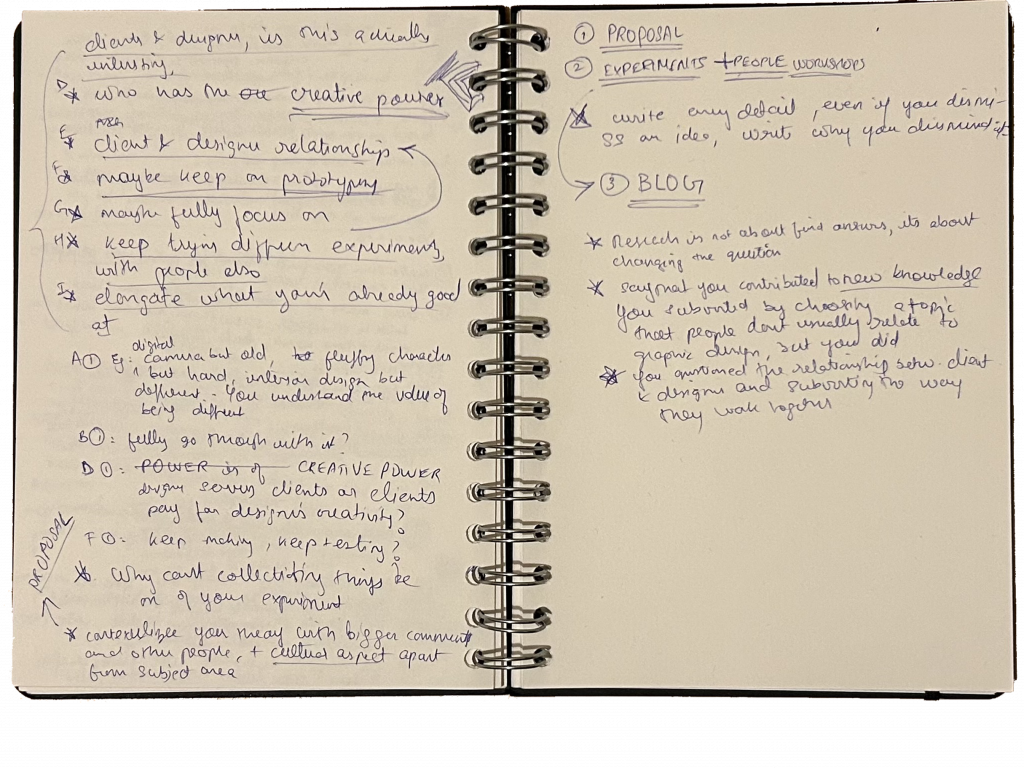 clients & designer, is this actually
interesting,
D* who has the creative power
E*
client & designer relationships
F* maybe keep on prototyping
G* maybe fully focus on
H* keep trying different experiments,
with people also
I* elongate what you're already good
at
digital
A① Eg: camera but old, fluffy character
but hard, interior design but
different. You understand the value of
being different
B①: fully go through with it?
D①: POWER is of CREATIVE POWER
serves clients or clients
pay for designer's creativity?
F①: keep making, keep testing?
* Why can't things be
of your experiment
PROPOSAL
* you with bigger
and other people, + cultural aspect apart
from subject area
① PROPOSAL
② EXPERIMENTS + PEOPLE WORKSHOPS
* write every detail, even if you dismi-
ss an idea, write why you dismissed it
③ BLOG
* Research is not about find answers, its about
changing the question
* say that you contributed to new knowledge
You subverted by choosing a topic
that people don't usually relate to
graphic design, but you did
* You the relationship betw. client
& designer and subverting the way
they work together